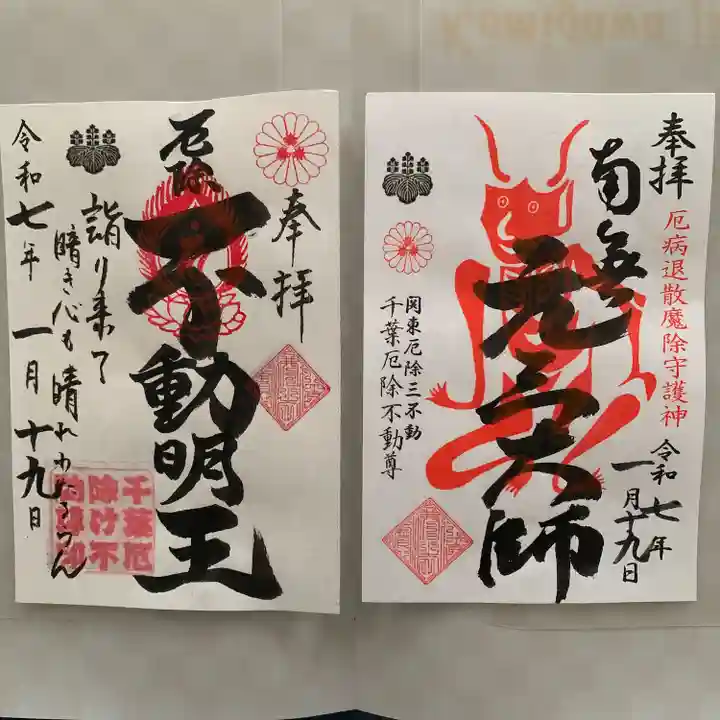 奉拝
厄除
不動明王
詣り来て
暗き心も晴れわたるらん
令和七年一月十九日
千葉厄
除け不
動尊印
奉拝
厄病退散魔除守護神
南無
元三大師
令和七年
一月十九日
関東厄除三不動
千葉厄除不動尊